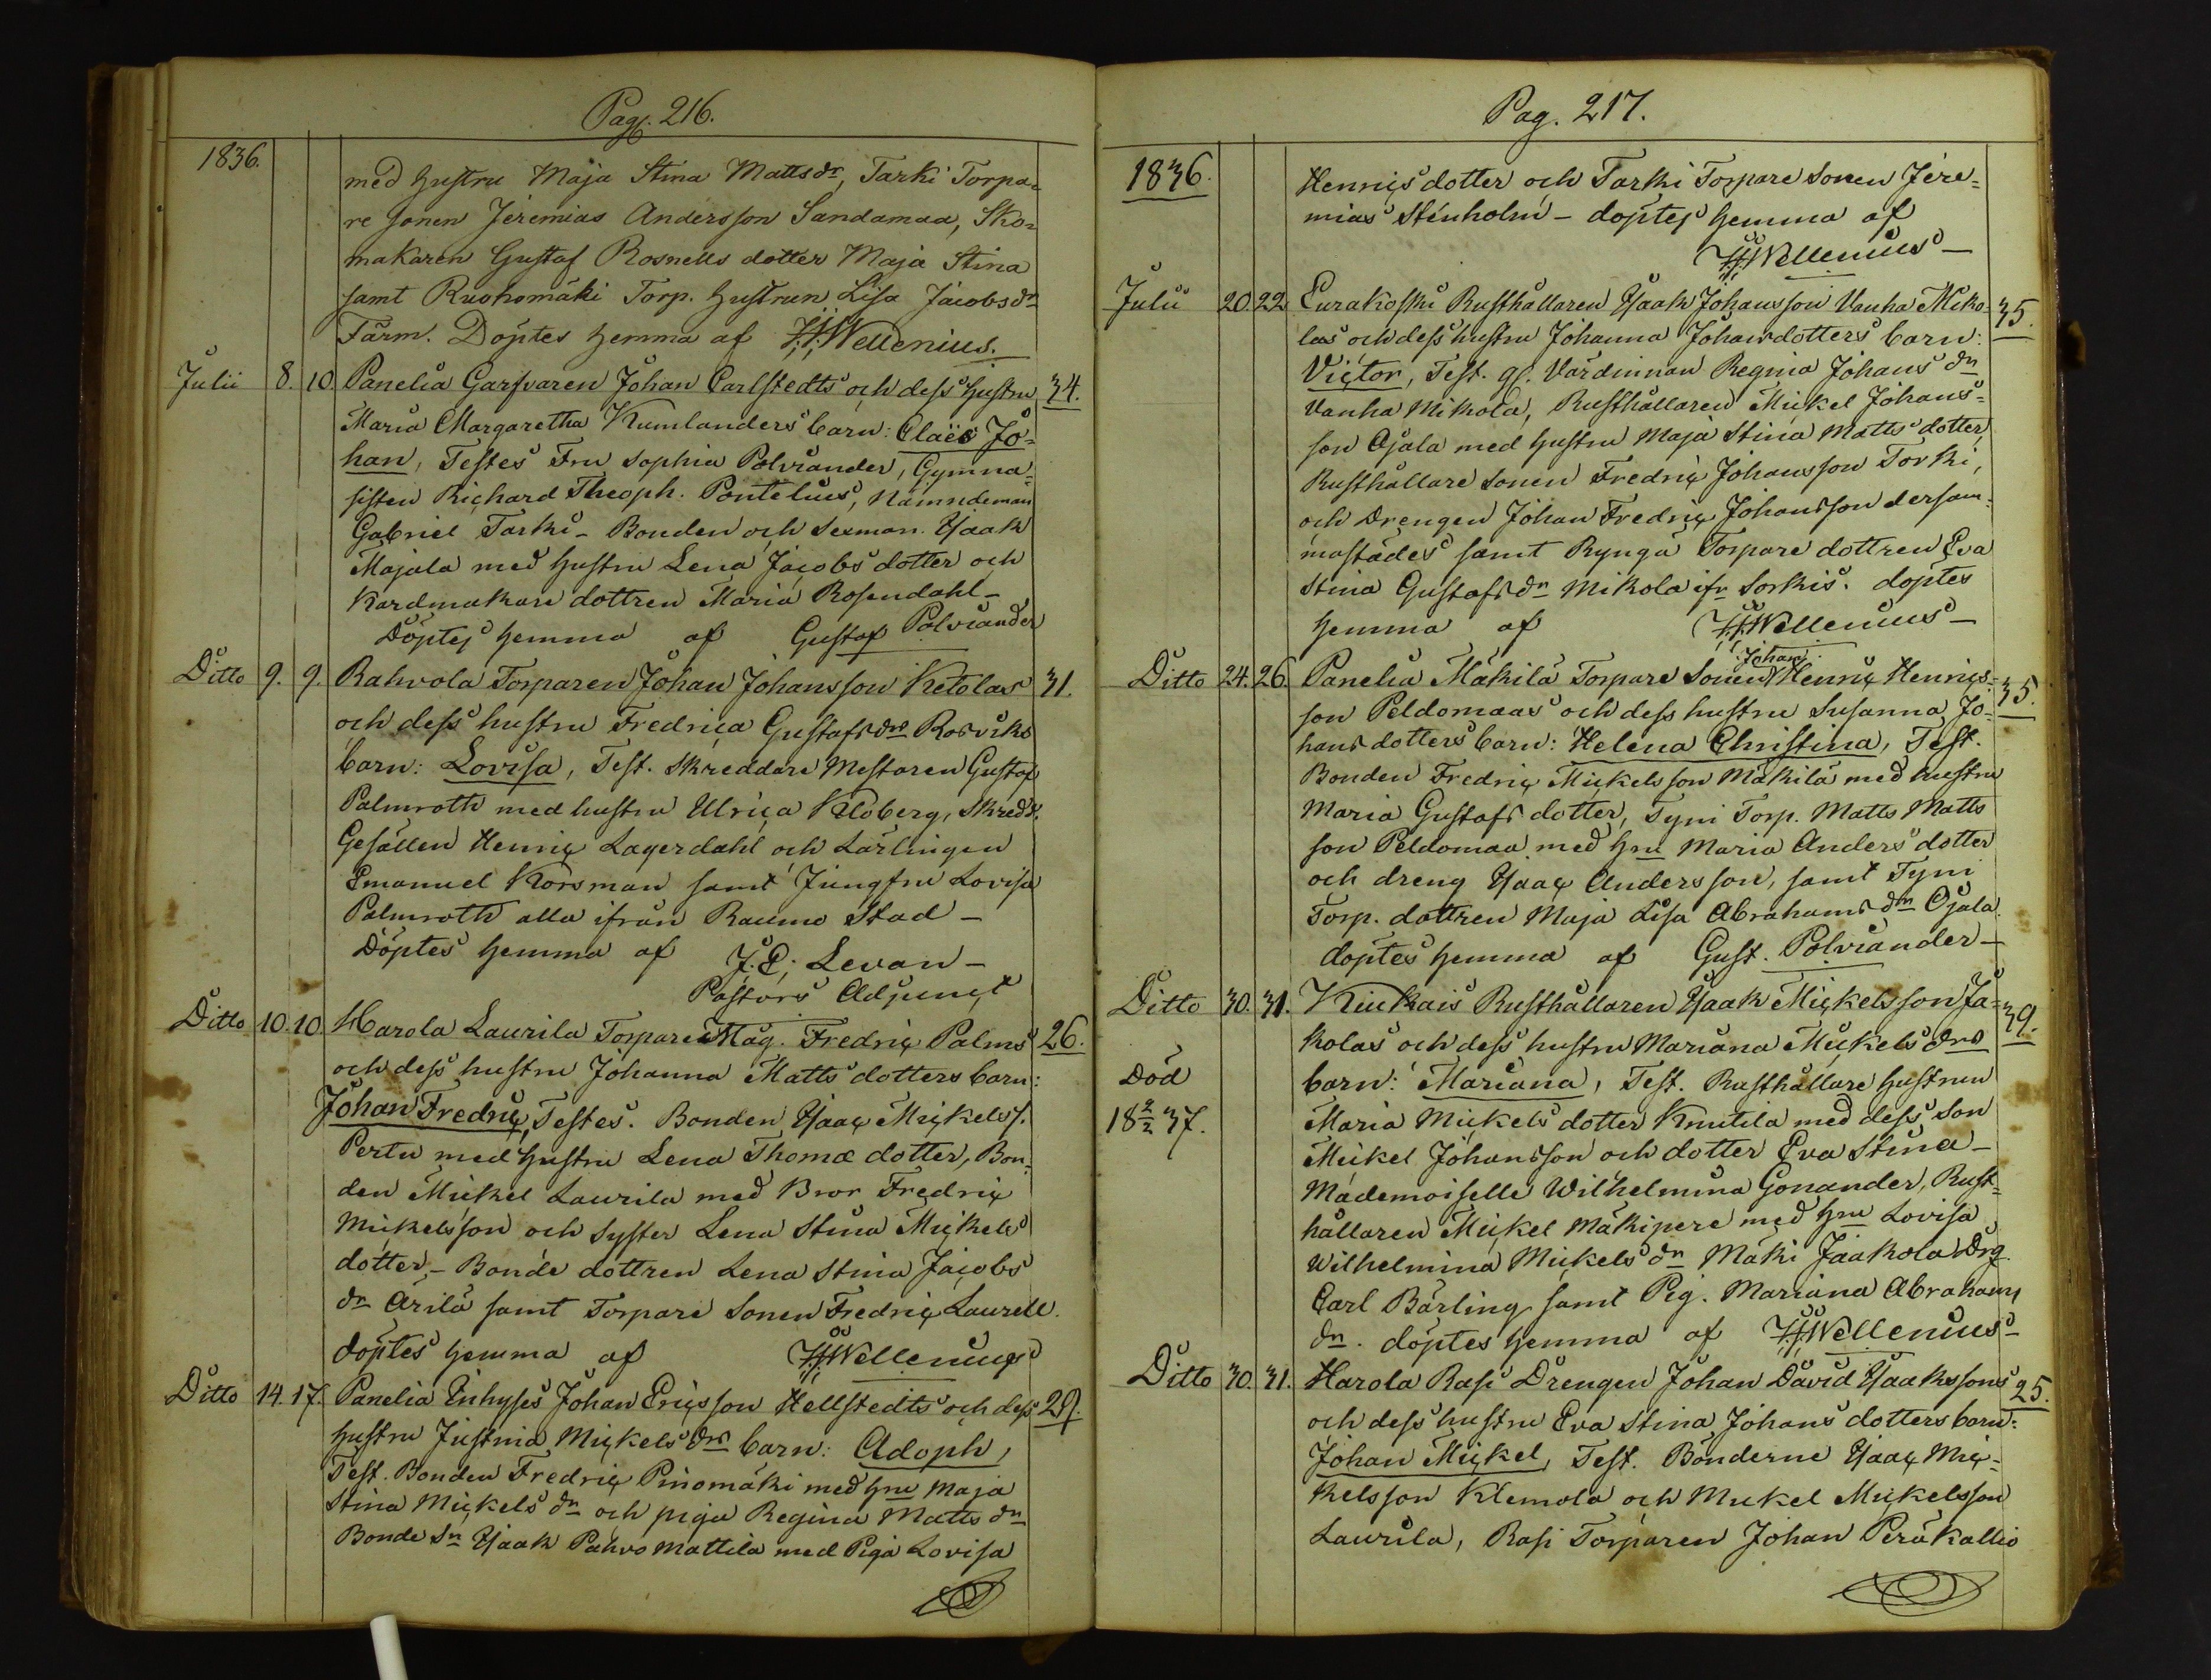 Pag. 216.
1836.
med hustru Maja Stina Mattsdr, Tarki Torpa=
re sonen Jeremias Andersson Sandamaa, Sko=
makaren Gustaf Rosnells dotter Maja Stina
samt Ruohomäki Torp. hustrun Lisa Jacobsdr
Färm. Döptes hemma af H.H.Wellenius.
Julii 8. 10. Panelia Garfvaren Johan Carlstedts och dess hustru 34.
Maria Margaretha Kumlanders barn: Claës Jo=
han, Testes Fru Sophia Polviander, Gymna=
sisten Richard Theoph. Pontelius, Nämndeman
Gabriel Tarki - Bonden och Sexman. Isaak
Majala med hustru Lena Jacobs dotter och
Kardmakare dottren Maria Rosendahl -
Döptes hemma af Gustaf Polviander
Ditto 9. 9. Rahvola Torparen Johan Johansson Ketolas 31.
och dess hustru Fredrica Gustafsdrs Rosviks
barn: Lovisa, Test. Skreddare Mestaren Gustaf
Palmroth med hustru Ulrica Kloberg, Skredd.
Gesällen Henric Lagerdahl och Lärlingen
Emanuel Korsman samt Jungfru Lovisa
Palmroth alla ifrån Raumo Stad -
Döptes hemma af J. E. Levan -
Pastors Adjunct
Ditto 10. 10. Harola Laurila Torparen Mag. Fredric Palms 26.
och dess hustru Johanna Matts dotters barn:
Johan Fredric, Testes. Bonden Isaac Mickelss.
Pertu med hustru Lena Thomæ dotter, Bon=
den Mickel Laurila med Bror Fredric
Mickelsson och Syster Lena Stina Mickels
dotter, - Bonde dottren Lena Stina Jacobs
dr Arila samt Torpare Sonen Fredric Laurell.
döptes hemma af H.H.Wellenius
Ditto 14. 17. Panelia Inhyses Johan Ericsson Hellstedts och dess 29.
hustru Justina Mickelsdrs barn: Adoph,
Test. Bonden Fredric Pinomäki med hru Maja
Stina Mickels dr och piga Regina Matts dr
Bonde Sn Isaak Pahvo Mattila med Piga Lovisa
Pag. 217.
1836.
Henrics dotter och Tarki Torpare Sonen Jere=
mias Stenholm - döptes hemma af
H.H.Wellenius -
Julii 20. 22. Eurakoski Rusthållaren Isaak Johansson Vanha Miko= 35.
las och dess hustru Johanna Johansdotters barn:
Victor, Test. gl. Värdinnan Regina Johans dr
Vanha Mikola, Rusthållaren Mickel Johans=
son Ojala med hustru Maja Stina Matts dotter,
Rusthållare Sonen Fredric Johansson Torki,
och Drengen Johan Fredric Johansson dersam=
mastädes samt Rynga Torpare dottren Eva
Stina Gustafs dr Mikola ifr Sorkis. döptes
hemma af H.H.Wellenius -
Johan
Ditto 24. 26. Panelia Mäkilä Torpare Sonen Henric Henrics= 35.
son Peldomaas och dess hustru Susanna Jo=
hans dotters barn: Helena Christina, Test.
Bonden Fredric Mickelsson Mäkilä med hustru
Maria Gustafs dotter, Tyni Torp. Matts Matts
son Peldomaa med hru Maria Anders dotter
och dreng Isaac Andersson, samt Tyni
Torp. dottren Maja Lisa Abrahams dr Ojala.
döptes hemma af Gust. Polviander -
Ditto 30. 31. Kiukais Rusthållaren Isaak Mickelsson Ja= 39.
kolas och dess hustru Mariana Mickels drs
Död barn: Mariana, Test. Rusthållare hustrun
18 2/2 37. Maria Mickels dotter Knutila med dess Son
Mickel Johansson och dotter Eva Stina -
Mademoiselle Wilhelmina Gonander, Rust=
hållaren Mickel Mäkipere med hru Lovisa
Wilhelmina Mickels dr Mäki Jaakola Drg.
Carl Bärling samt Pig. Mariana Abrahams
dr. döptes hemma af H.H.Wellenius -
Ditto 30. 31. Harola Rasi Drengen Johan David Isaakssons 25.
och dess hustru Eva Stina Johans dotters barn:
Johan Mickel, Test. Bönderne Isaac Mic=
kelsson Klemola och Mickel Mickelsson
Laurila, Rasi Torparen Johan Peräkallio